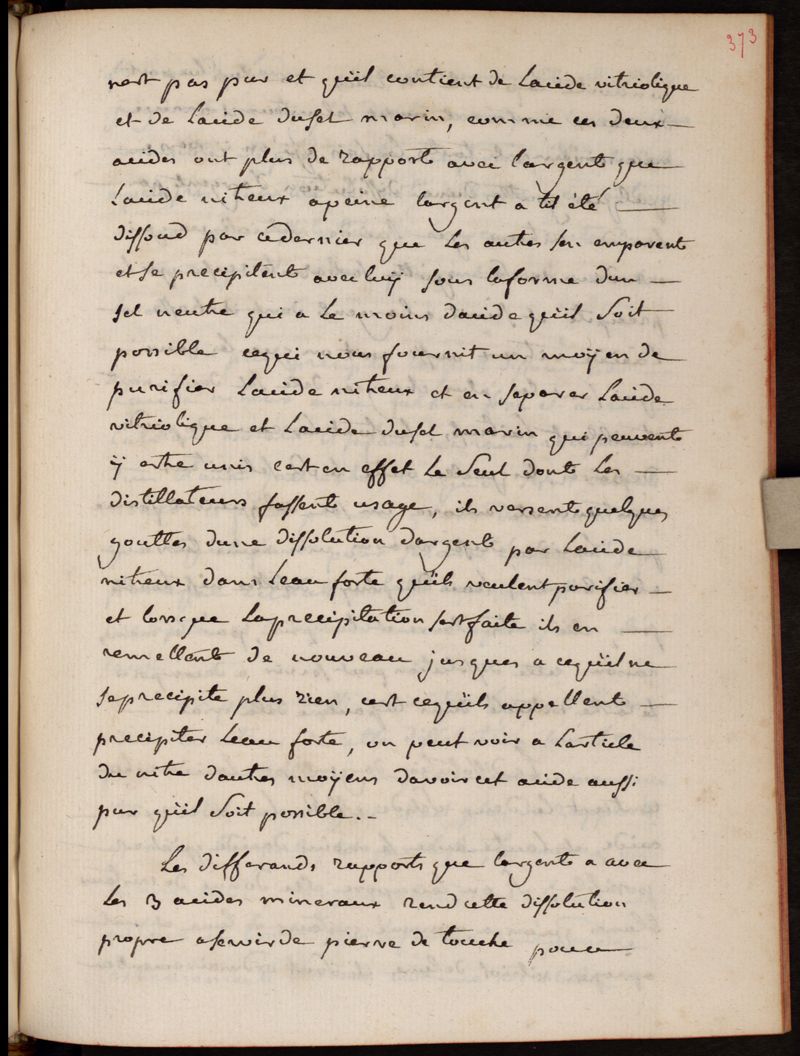 373
nest pas pur et qüil contient de Lacide vitriolique
et de Lacide dusel marin, comme ces deux
acides ont plus de rapports avec largent que
Lacide nitreux apeine largent a til été
dissoud par cedernier que Les autres sen emparent
et se precipitent avec luÿ sous laforme dun
sel neutre qui a Le moins dacide qüil Soit
possible cequi nous fournit un moÿen de
purifier Lacide nitreux et en separer Lacide
vitriolique et Lacide dusel marin qui peuvent
ÿ estre unis cest en effet Le Seul dont Les
distillateurs fassent usage, ils versent quelques
gouttes dune dissolution dargent par Lacide
nitreux dans Leau forte qüils veulent purifier
et lorsque Laprecipitation sest faite ils en
remettent de nouveau jusques a ceqüil ne
seprecipite plus rien, cest ceqüils appellent
precipiter Leau forte, on peut voir a Larticle
du nitre dautres moÿens davoir cet acide aussi
pur qüil Soit possible.
Les differands rapports que largent a avec
Les 3 acides mineraux rend cette dissolution
propre aservir de pierre de touche pour